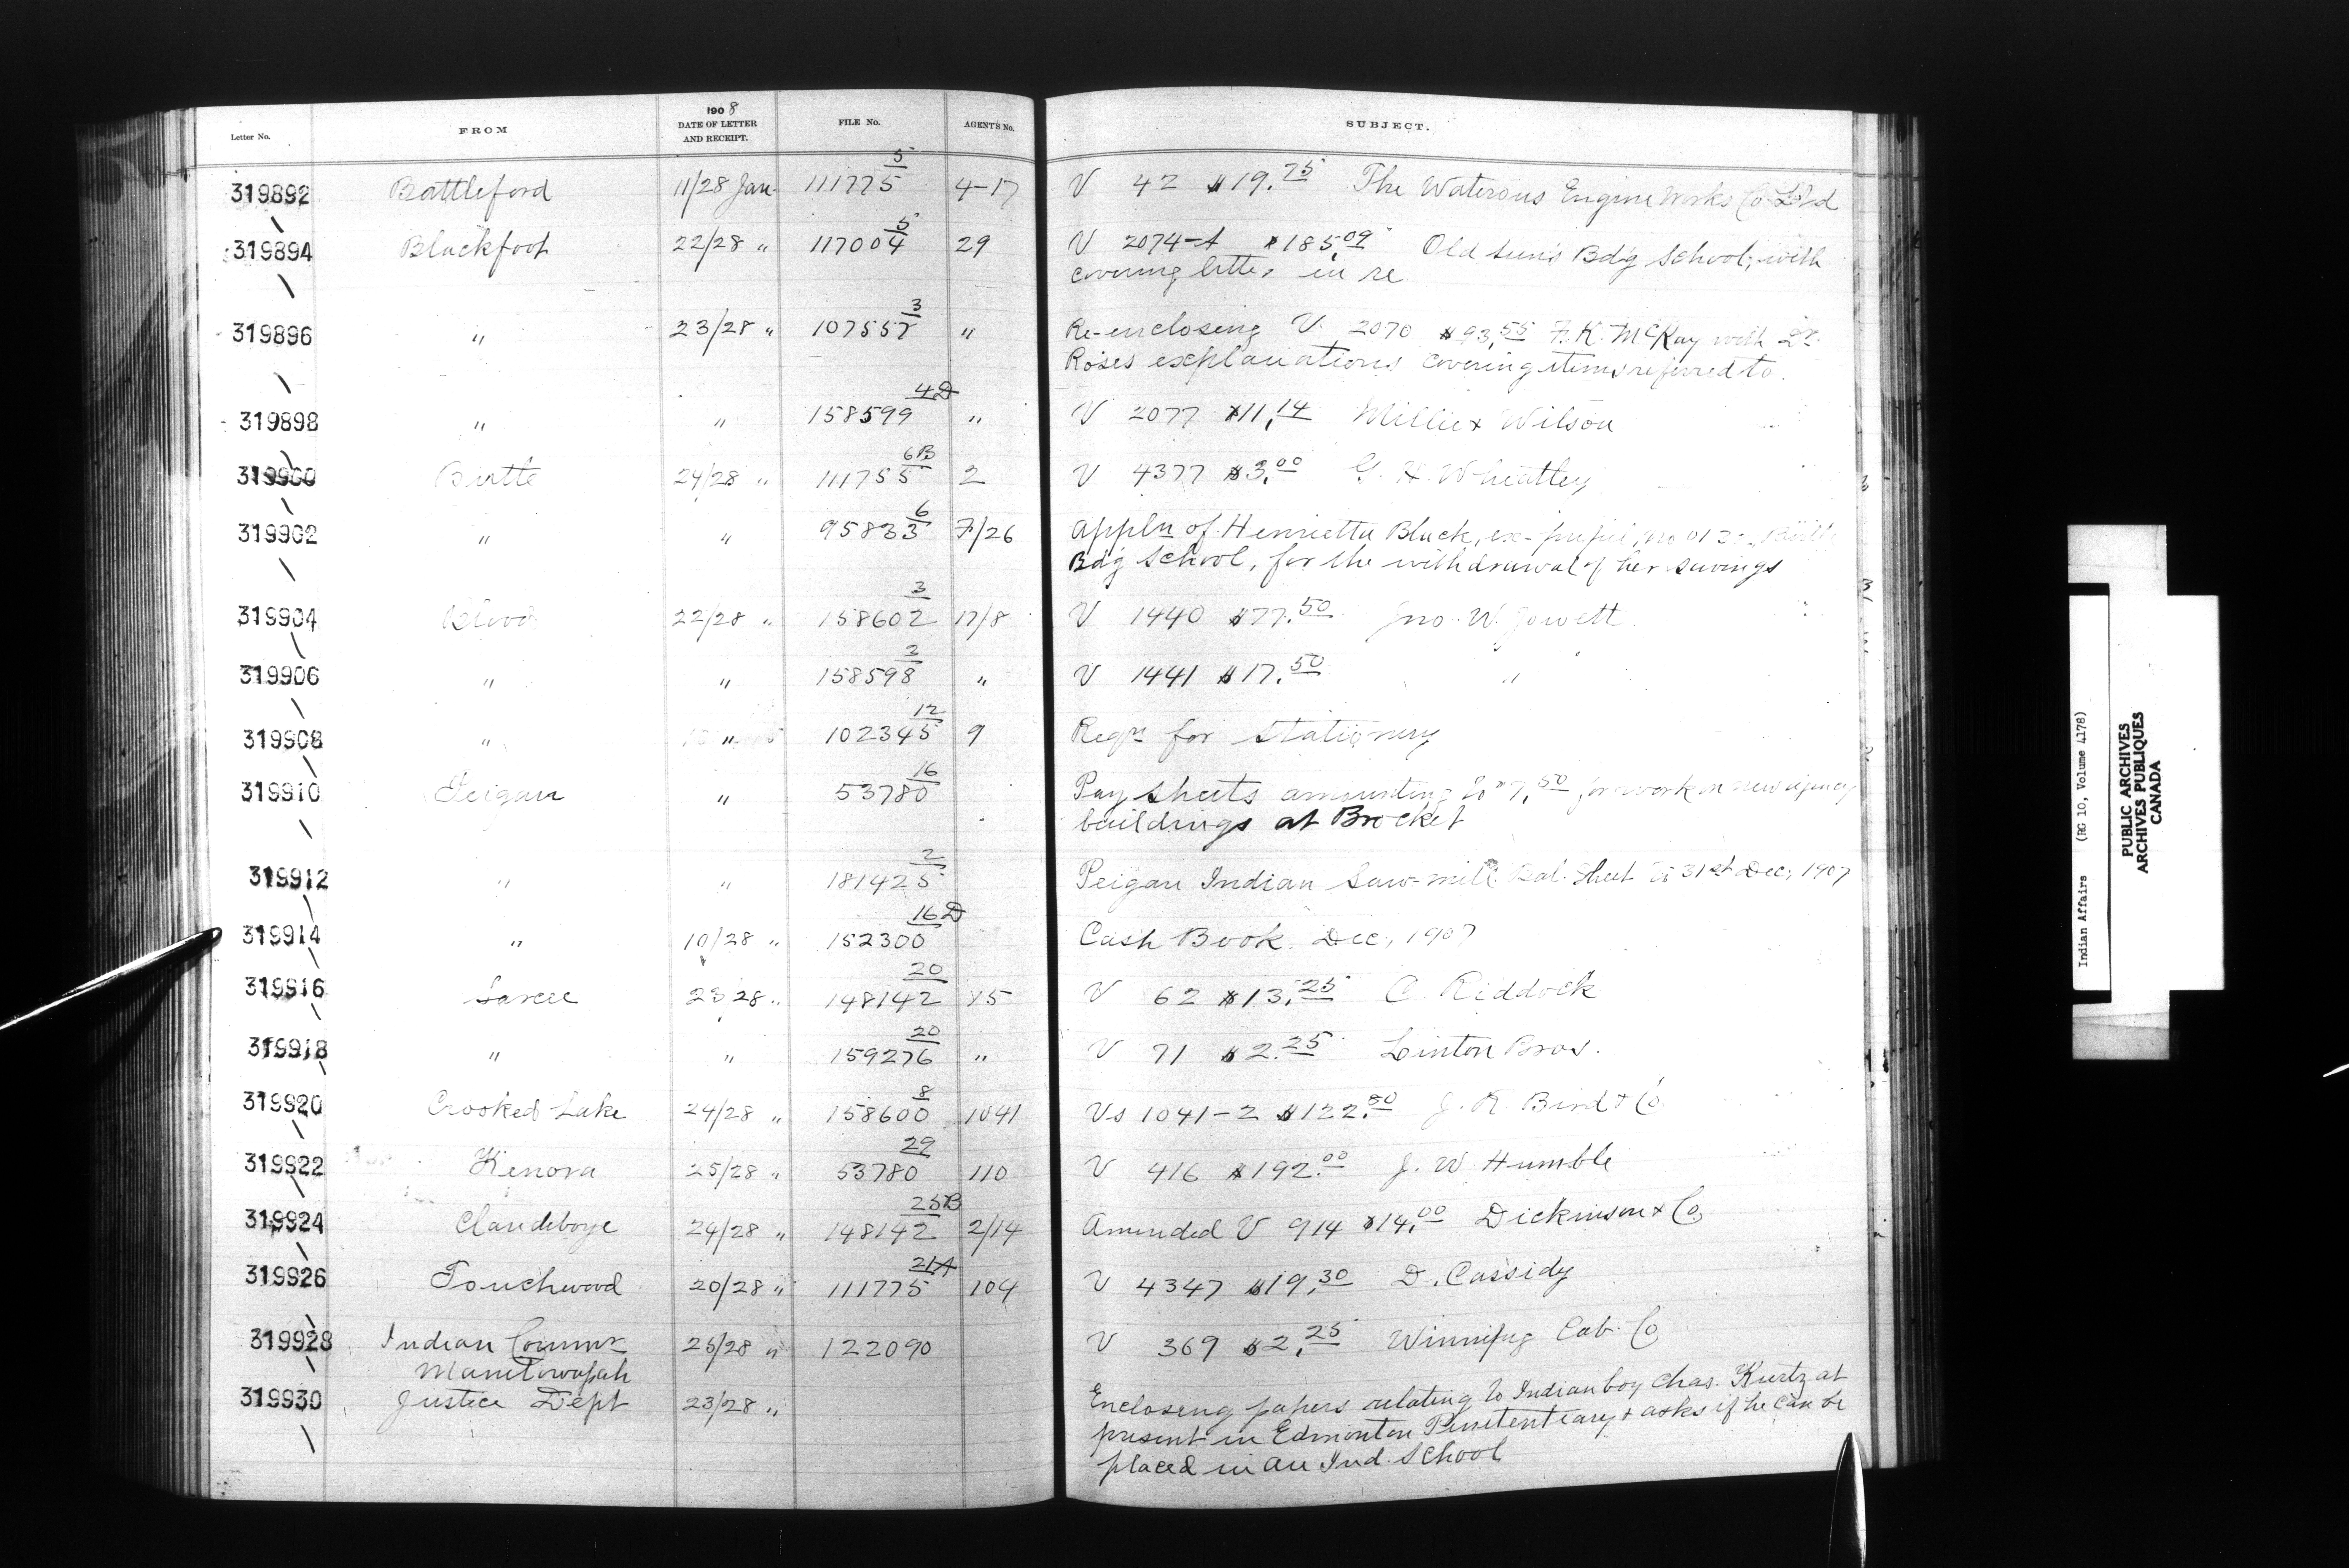 Letter No. FROM 1908 DATE OF LETTER AND RECEIPT. FILE No. AGENT'S No. SUBJECT.
319892 Battleford 11/28 Jan. 111775/5 4-17 V 42 $19.75 The Waterous Engine Works Co Ltd
319894 Blackfoot 22/28 " 117004/5 29 V 2074-A $185.09 Old Sun's Bdg School, with
covering letter in re
319896 " 23/28 " 107557/3 " Re-enclosing V. 2070 $93.55 F. K. McKay with Dr.
Roses explanations covering items referred to.
319898 " " 158599/4D " V 2077 $11.14 Millie & Wilson
319900 Birtle 24/28 " 111755/6B 2 V 4377 $3.00 G. H. Wheatley
319902 " " 95833/6 7/26 Appln of Henrietta Black, ex-pupil, no 013-, Birtle
Bdg School, for the withdrawal of her savings
319904 Blood 22/28 " 158602/3 17/8 V 1440 $77.50 Jno. W. Jowett
319906 " " 158598/3 " V 1441 $17.50 "
319908 " " 102345/12 9 Reqn for stationery
319910 Peigan " 53780/16 Pay sheets amounting to $7.50 for work on new agency
buildings at Brocket
319912 " " 181425/2 Peigan Indian Saw-mill Bal. Sheet to 31st Dec, 1907
319914 " 10/28 " 152300/16D Cash Book. Dec, 1907
319916 Sarcee 23 28 " 148142/20 15 V 62 $13.25 C. Riddock
319918 " " 159276/20 " V 71 $2.25 Linton Bros.
319920 Crooked Lake 24/28 " 158600/8 1041 Vs 1041-2 $122.50 J. R. Bird & Co
319922 Kenora 25/28 " 53780/29 110 V 416 $192.00 J. W. Humble
319924 Clandeboye 24/28 " 148142/25B 2/14 Amended V 914 $14.00 Dickinson & Co
319926 Touchwood 20/28 " 111775/21A 104 V 4347 $19.30 D. Cassidy
319928 Indian Commr 25/28 " 122090 V 369 $2.25 Winnipeg Cab. Co
Manitowapah
319930 Justice Dept 23/28 " Enclosing papers relating to Indian boy Chas. Kurtz at
present in Edmonton Penitentiary & asks if he can be
placed in an Ind. School
Indian Affairs (RG 10, Volume 4178)
PUBLIC ARCHIVES
ARCHIVES PUBLIQUES
CANADA